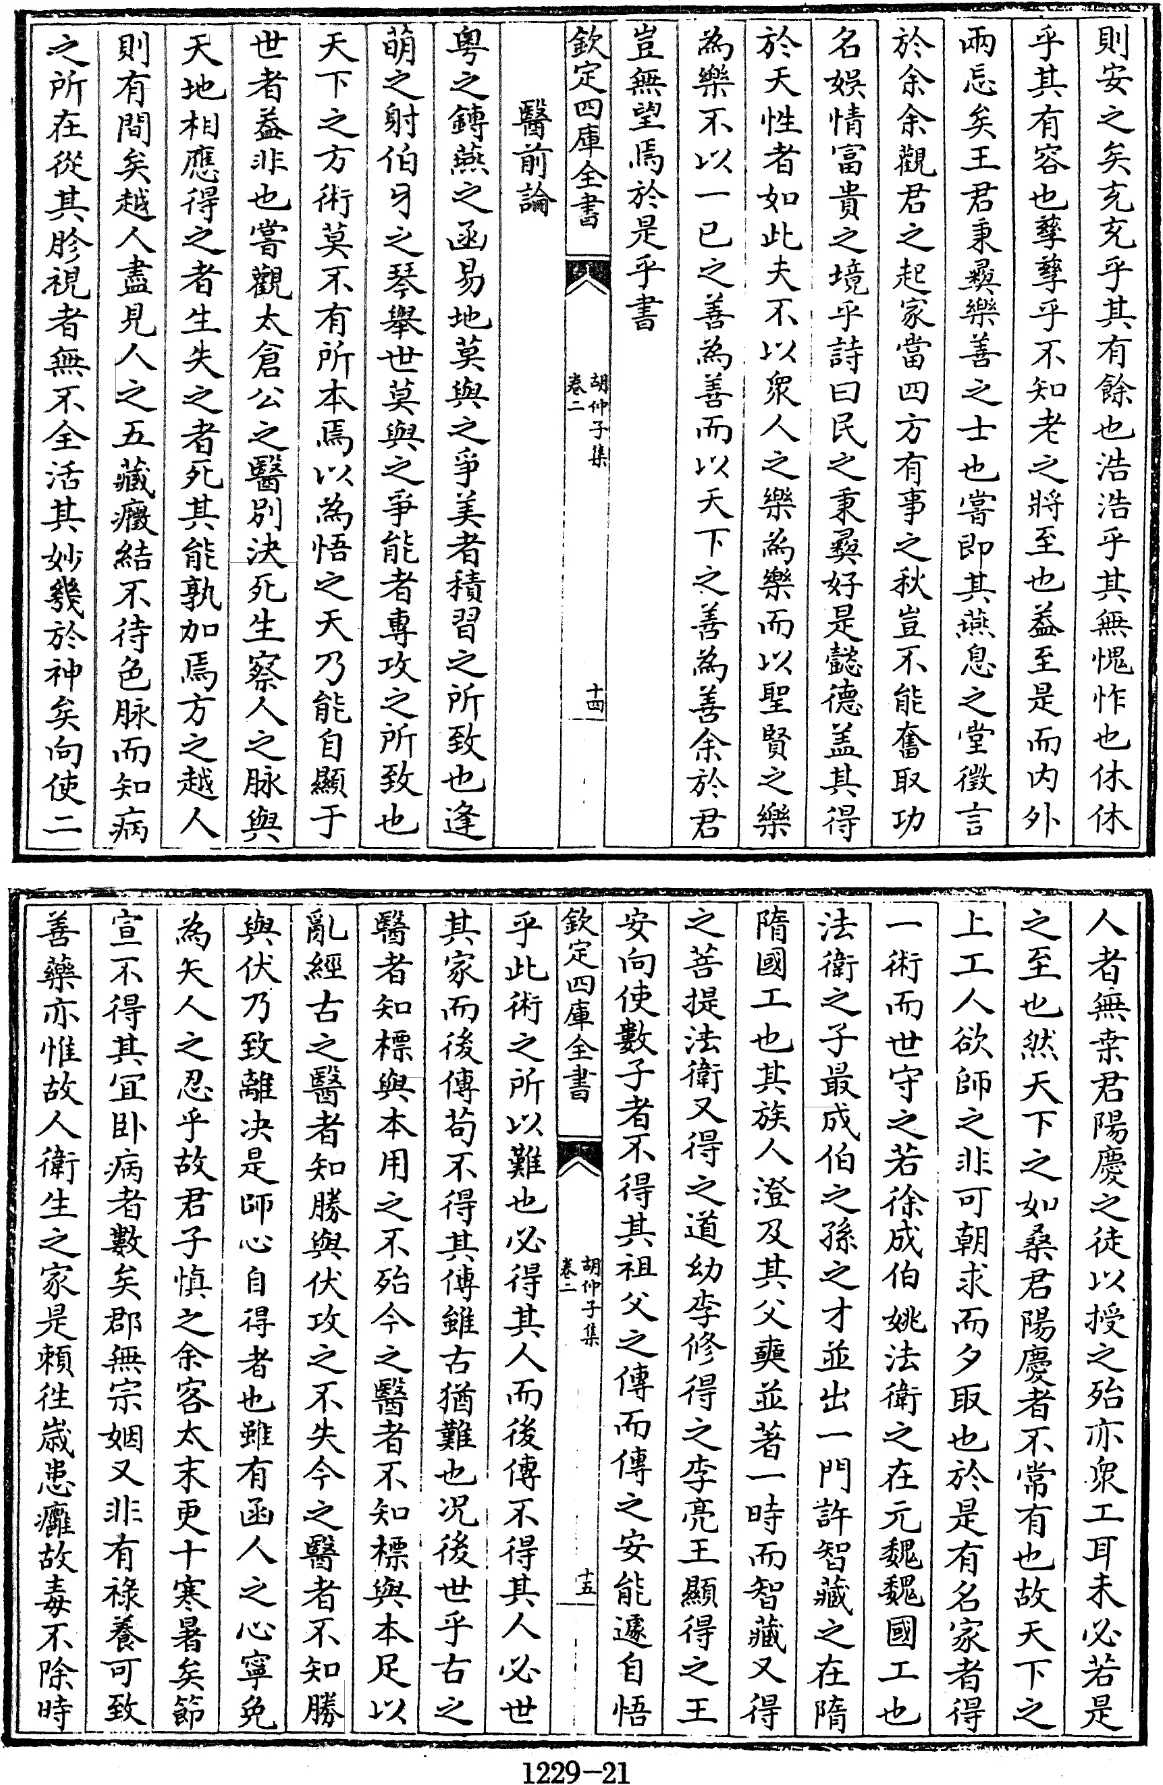 則安之矣充充乎其有餘也浩浩乎其無愧怍也休休
乎其有容也孳孳乎不知老之將至也益至是而内外
兩忘矣王君秉彛樂善之士也嘗即其燕息之堂徵言
於余余觀君之起家當四方有事之秋豈不能奮取功
名娱情富貴之境乎詩曰民之秉彛好是懿德盖其得
於天性者如此夫不以衆人之樂為樂而以聖賢之樂
為樂不以一己之善為善而以天下之善為善余於君
豈無望焉於是乎書
欽定四庫全書
胡仲子集
卷二
十四
醫前論
粤之鎛燕之函易地莫與之爭美者積習之所致也逢
萌之射伯牙之琴舉世莫與之爭能者專攻之所致也
天下之方術莫不有所本焉以為悟之天乃能自顯于
世者益非也嘗觀太倉公之醫别決死生察人之脉與
天地相應得之者生失之者死其能孰加焉方之越人
則有間矣越人盡見人之五藏癥結不待色脉而知病
之所在從其胗視者無不全活其妙幾於神矣向使二
人者無桒君陽慶之徒以授之殆亦衆工耳未必若是
之至也然天下之如桑君陽慶者不常有也故天下之
上工人欲師之非可朝求而夕取也於是有名家者得
一術而世守之若徐成伯姚法衛之在元魏魏國工也
法衛之子最成伯之孫之才並出一門許智藏之在隋
隋國工也其族人澄及其父奭並著一時而智藏又得
之菩提法衛又得之道幼李修得之李亮王顯得之王
安向使數子者不得其祖父之傳而傳之安能遽自悟
欽定四庫全書
胡仲子集
卷二
十五
乎此術之所以難也必得其人而後傳不得其人必世
其家而後傳苟不得其傳雖古猶難也况後世乎古之
醫者知標與本用之不殆今之醫者不知標與本足以
亂經古之醫者知勝與伏攻之不失今之醫者不知勝
與伏乃致離决是師心自得者也雖有函人之心寧免
為矢人之忍乎故君子慎之余客太末更十寒暑矣節
宣不得其宜卧病者數矣郡無宗姻又非有禄養可致
善藥亦惟故人衛生之家是頼徃歳患癰故毒不除時
1229－21